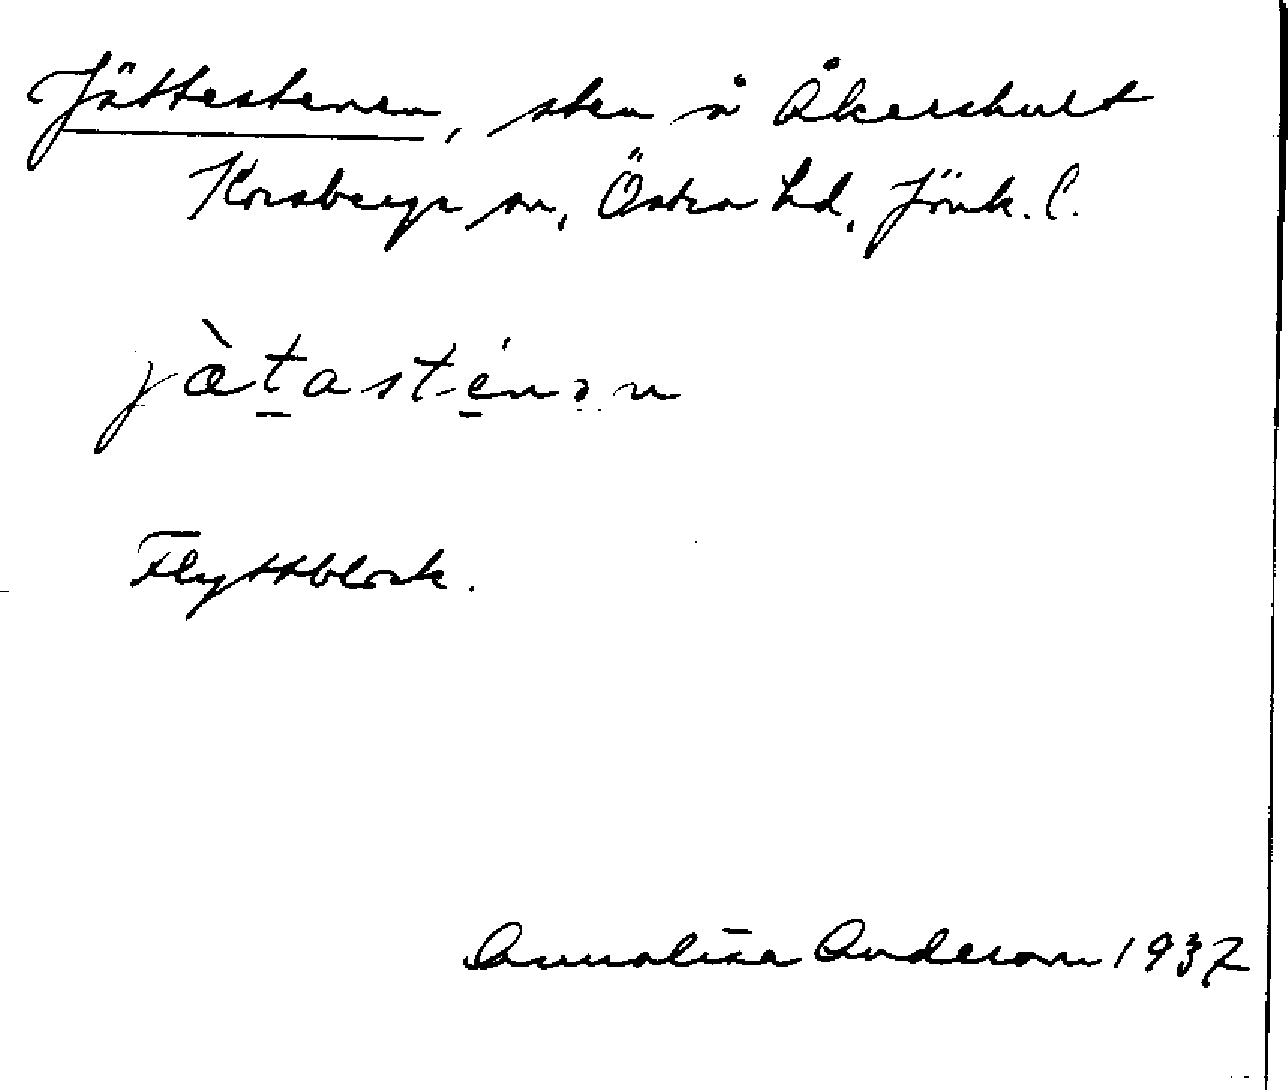 Jättestenen, sten å Åkershult
Korsberga sn, Östra hd, Jönk. l.
jæ̀t̠asté̠nən
Flyttblock.
Annalisa Anderson 1937